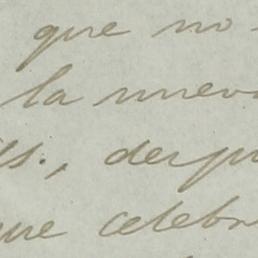 que no
la nueva
ls., despu
que celebr